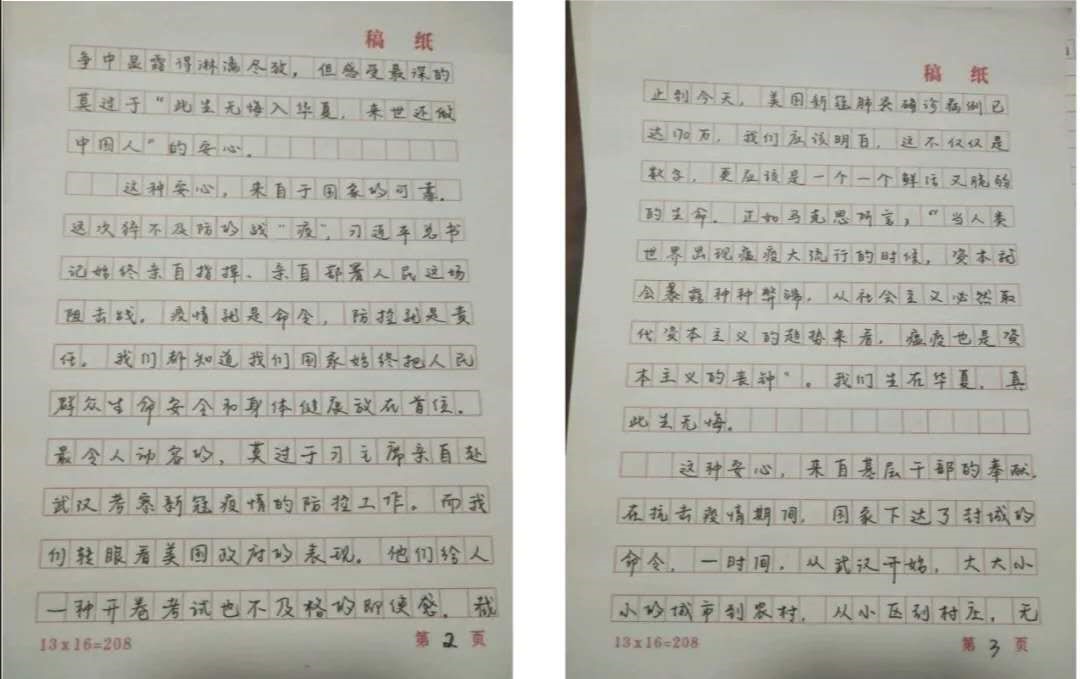 稿 纸
争中显露得淋漓尽致，但感受最深的
莫过于“此生无悔入华夏，来世还做
中国人”的安心。
这种安心，来自于国家的可靠。
这次猝不及防的战“疫”，习近平总书
记始终亲自指挥、亲自部署人民这场
阻击战。疫情就是命令，防控就是责
任。我们都知道我们国家始终把人民
群众生命安全和身体健康放在首位。
最令人动容的，莫过于习主席亲自赴
武汉考察新冠疫情的防控工作。而我
们转眼看美国政府的表现。他们给人
一种开卷考试也不及格的即使感。截
13×16=208
第 2 页
稿 纸
止到今天，美国新冠肺炎确诊病例已
达170万，我们应该明白，这不仅仅是
数字，更应该是一个一个鲜活又脆弱
的生命。正如马克思所言：“当人类
世界出现瘟疫大流行的时候，资本就
会暴露种种弊端，从社会主义必然取
代资本主义的趋势来看，瘟疫也是资
本主义的丧钟”。我们生在华夏，真
此生无悔。
这种安心，来自基层干部的奉献。
在抗击疫情期间，国家下达了封城的
命令，一时间，从武汉开始，大大小
小的城市到农村，从小区到村庄，无
13×16=208
第 3 页